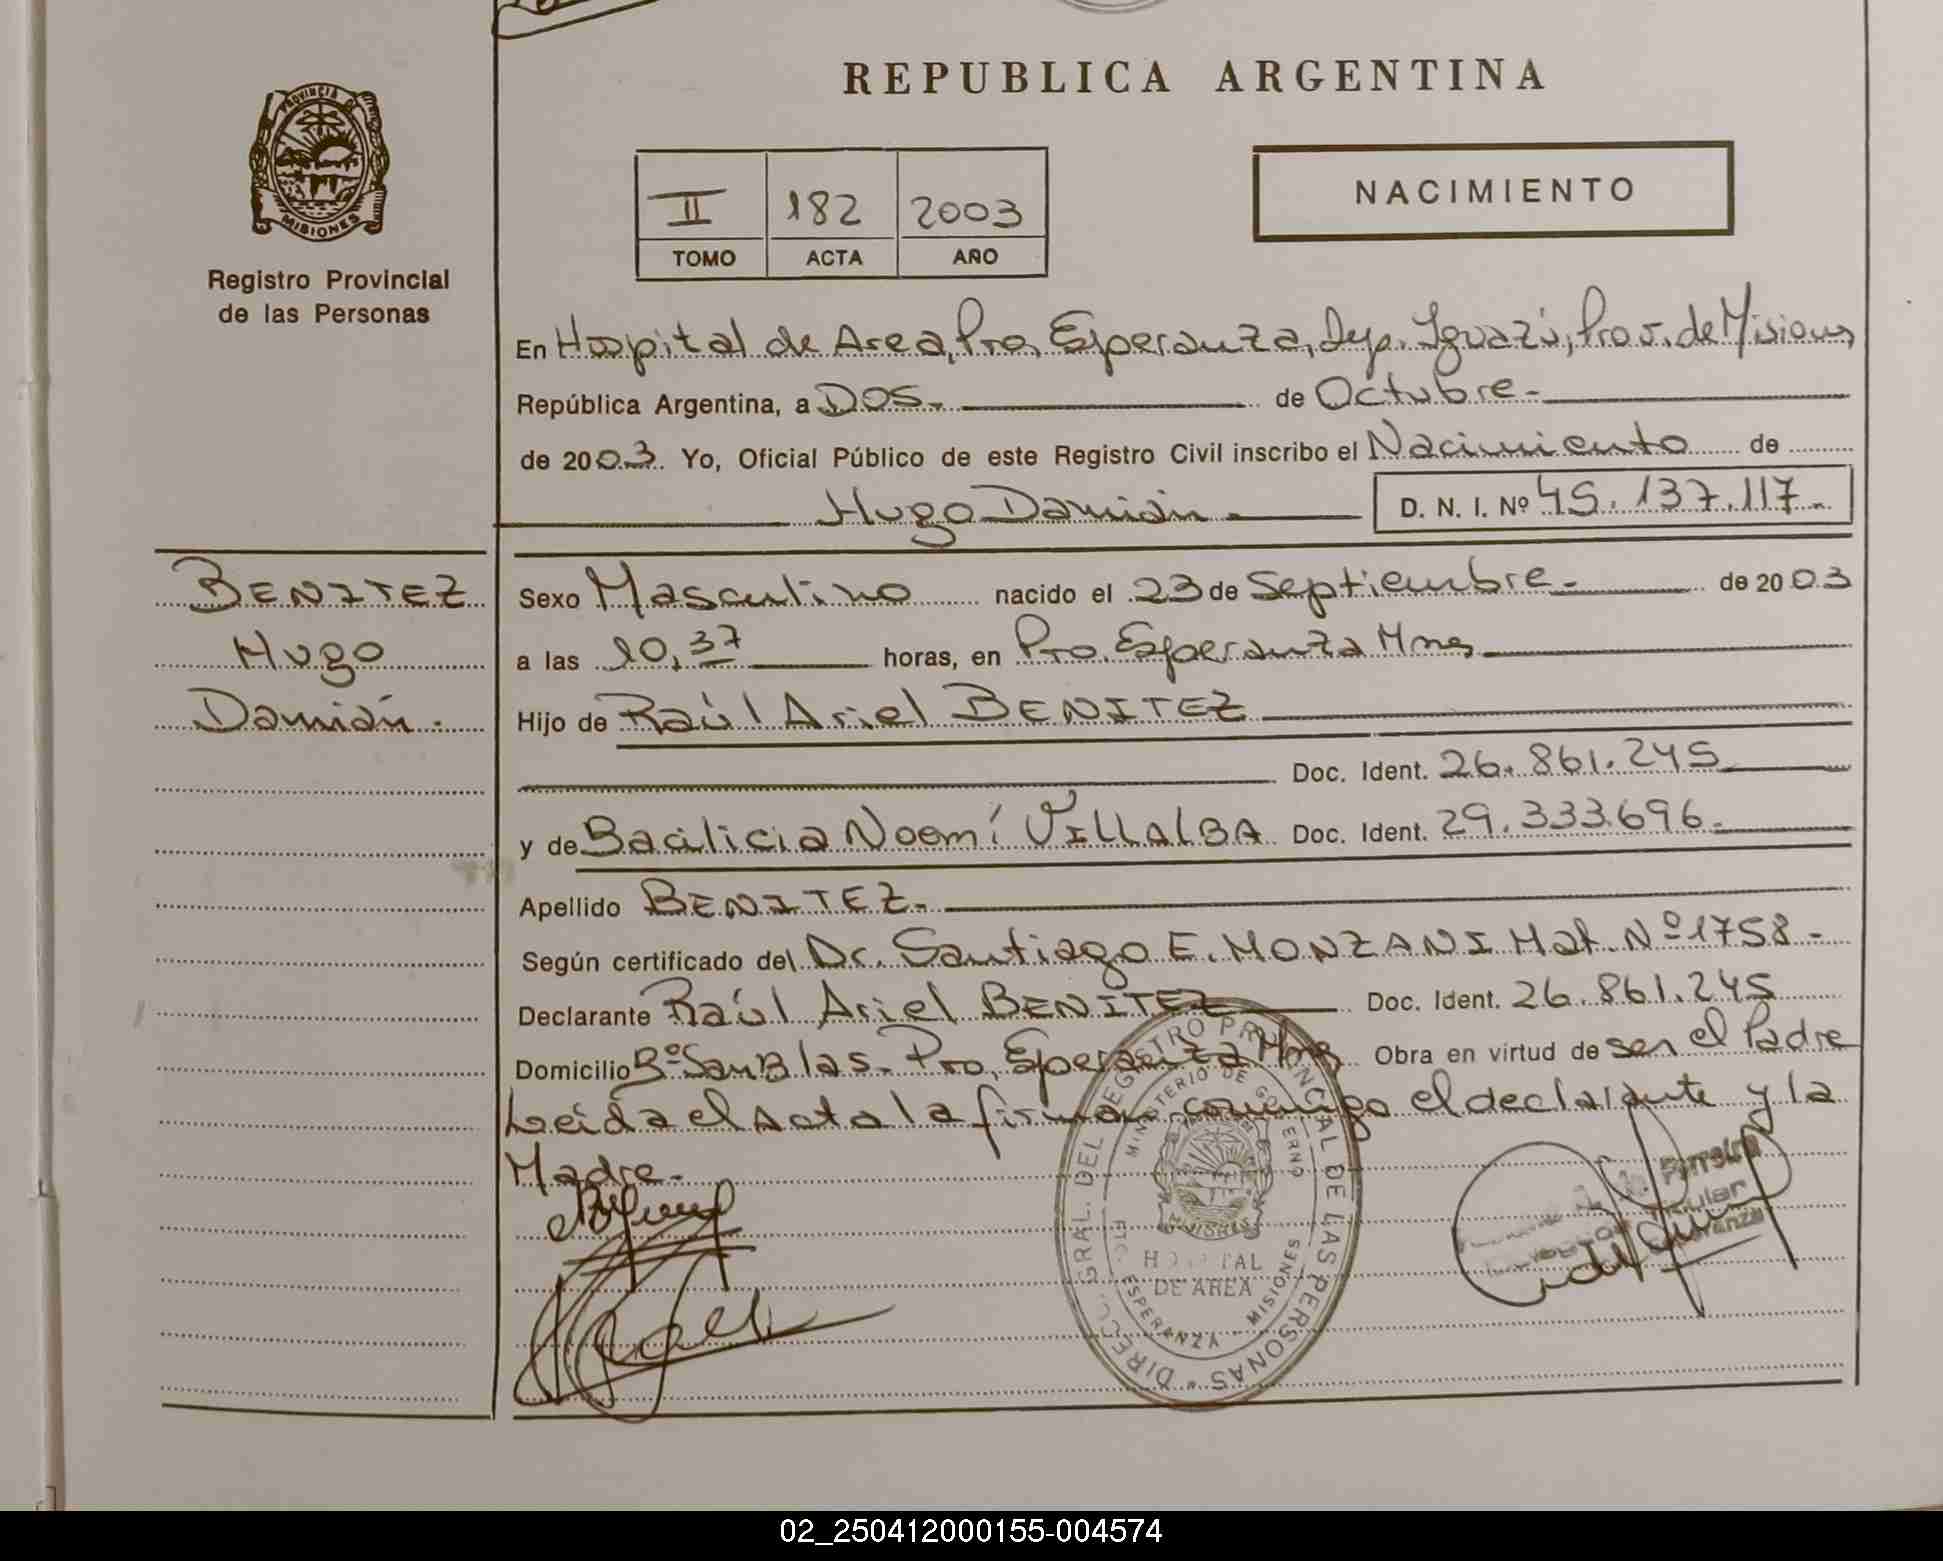 REPUBLICA ARGENTINA
PROVINCIA DE
MISIONES
Registro Provincial
de las Personas
II 182 2003
TOMO ACTA AÑO
NACIMIENTO
En Hospital de Area, Pto. Esperanza, Dep. Iguazú, Prov. de Misiones,
República Argentina, a DOS.- de Octubre.-
de 2003. Yo, Oficial Público de este Registro Civil inscribo el Nacimiento de
Hugo Damián.-
D. N. I. Nº 45.137.117.-
BENITEZ
Hugo
Damián.-
Sexo Masculino nacido el 23 de Septiembre.- de 2003
a las 10,37 horas, en Pto. Esperanza Mnes
Hijo de Raúl Ariel BENITEZ
Doc. Ident. 26.861.245
y de Bacilicia Noemí VILLALBA Doc. Ident. 29.333.696.-
Apellido BENITEZ.-
Según certificado del Dr. Santiago E. MONZANI Mat. Nº 1758.-
Declarante Raúl Ariel BENITEZ Doc. Ident. 26.861.245
Domicilio Bº San Blas.- Pto. Esperanza Mnes Obra en virtud de ser el Padre
Leída el Acta la firman conmigo el declarante y la
Madre.-
DIRECC. GRAL. DEL REGISTRO PROVINCIAL DE LAS PERSONAS
MINISTERIO DE GOBIERNO
MISIONES
HOSPITAL
DE AREA
PTO. ESPERANZA - MISIONES
02_250412000155-004574